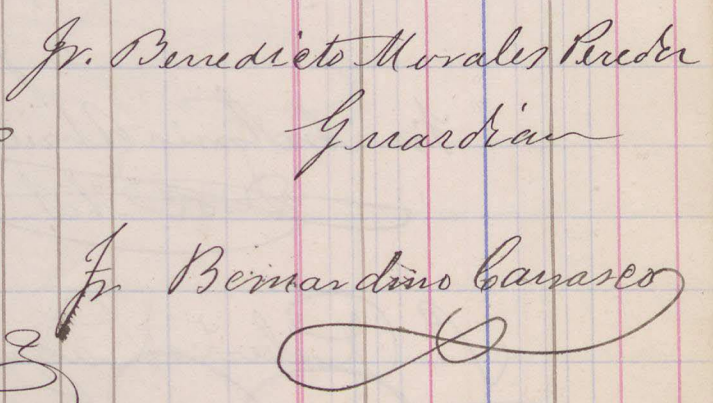 Fr. Benedicto Morales Pereda
Guardian
Fr Bernardino Carrasco